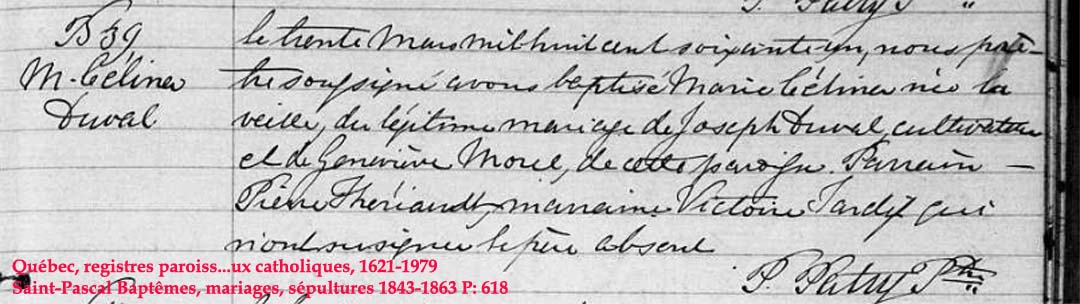 P. Patry Ptre
B 39
M. Célina
Duval
le trente Mars mil huit cent soixante un, nous prê-
tre soussigné avons baptisé Marie Célina née la
veille, du légitime mariage de Joseph Duval, cultivateur
et de Geneviève Morel, de cette paroisse. Parrain
Pierre Thériault, marraine Victoire Tardif qui
n'ont su signer le père absent
P. Patry Ptre
Québec, registres paroiss...ux catholiques, 1621-1979
Saint-Pascal Baptêmes, mariages, sépultures 1843-1863 P: 618